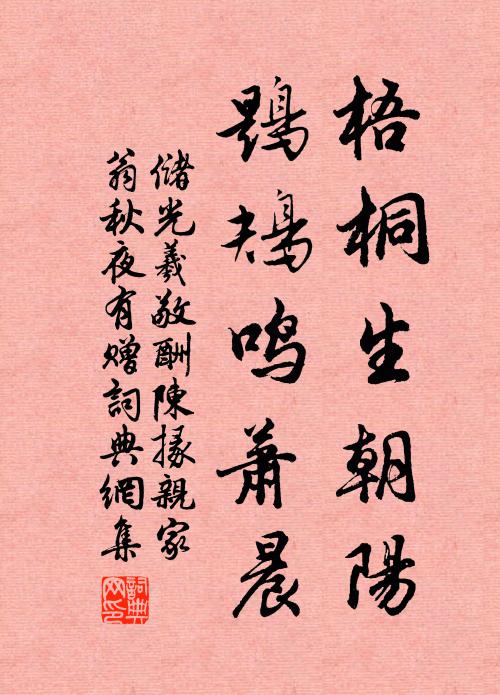 梧桐生朝陽
鶗鴂鳴蕭晨
儲光羲敬酬陳掾親家
翁秋夜有贈詞典網集